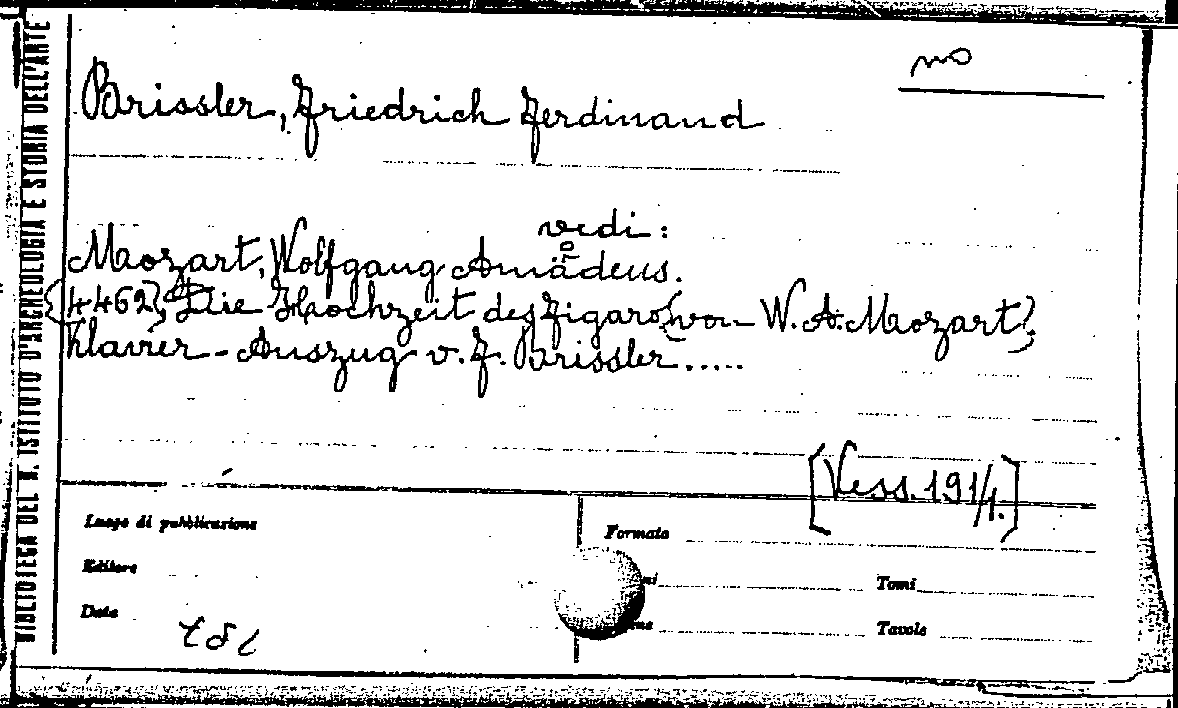 BIBLIOTECA DEL R. ISTITUTO D'ARCHEOLOGIA E STORIA DELL'ARTE
no
Brissler, Friedrich Ferdinand
vedi:
Mozart, Wolfgang Amadeus.
{4462} Die Hochzeit des Figaro {von W. A. Mozart},
Klavier-Auszug v. F. Brissler.....
[Vess. 191/1.]
Luogo di pubblicazione
Formato
Editore
Tomi
Data
Tavole